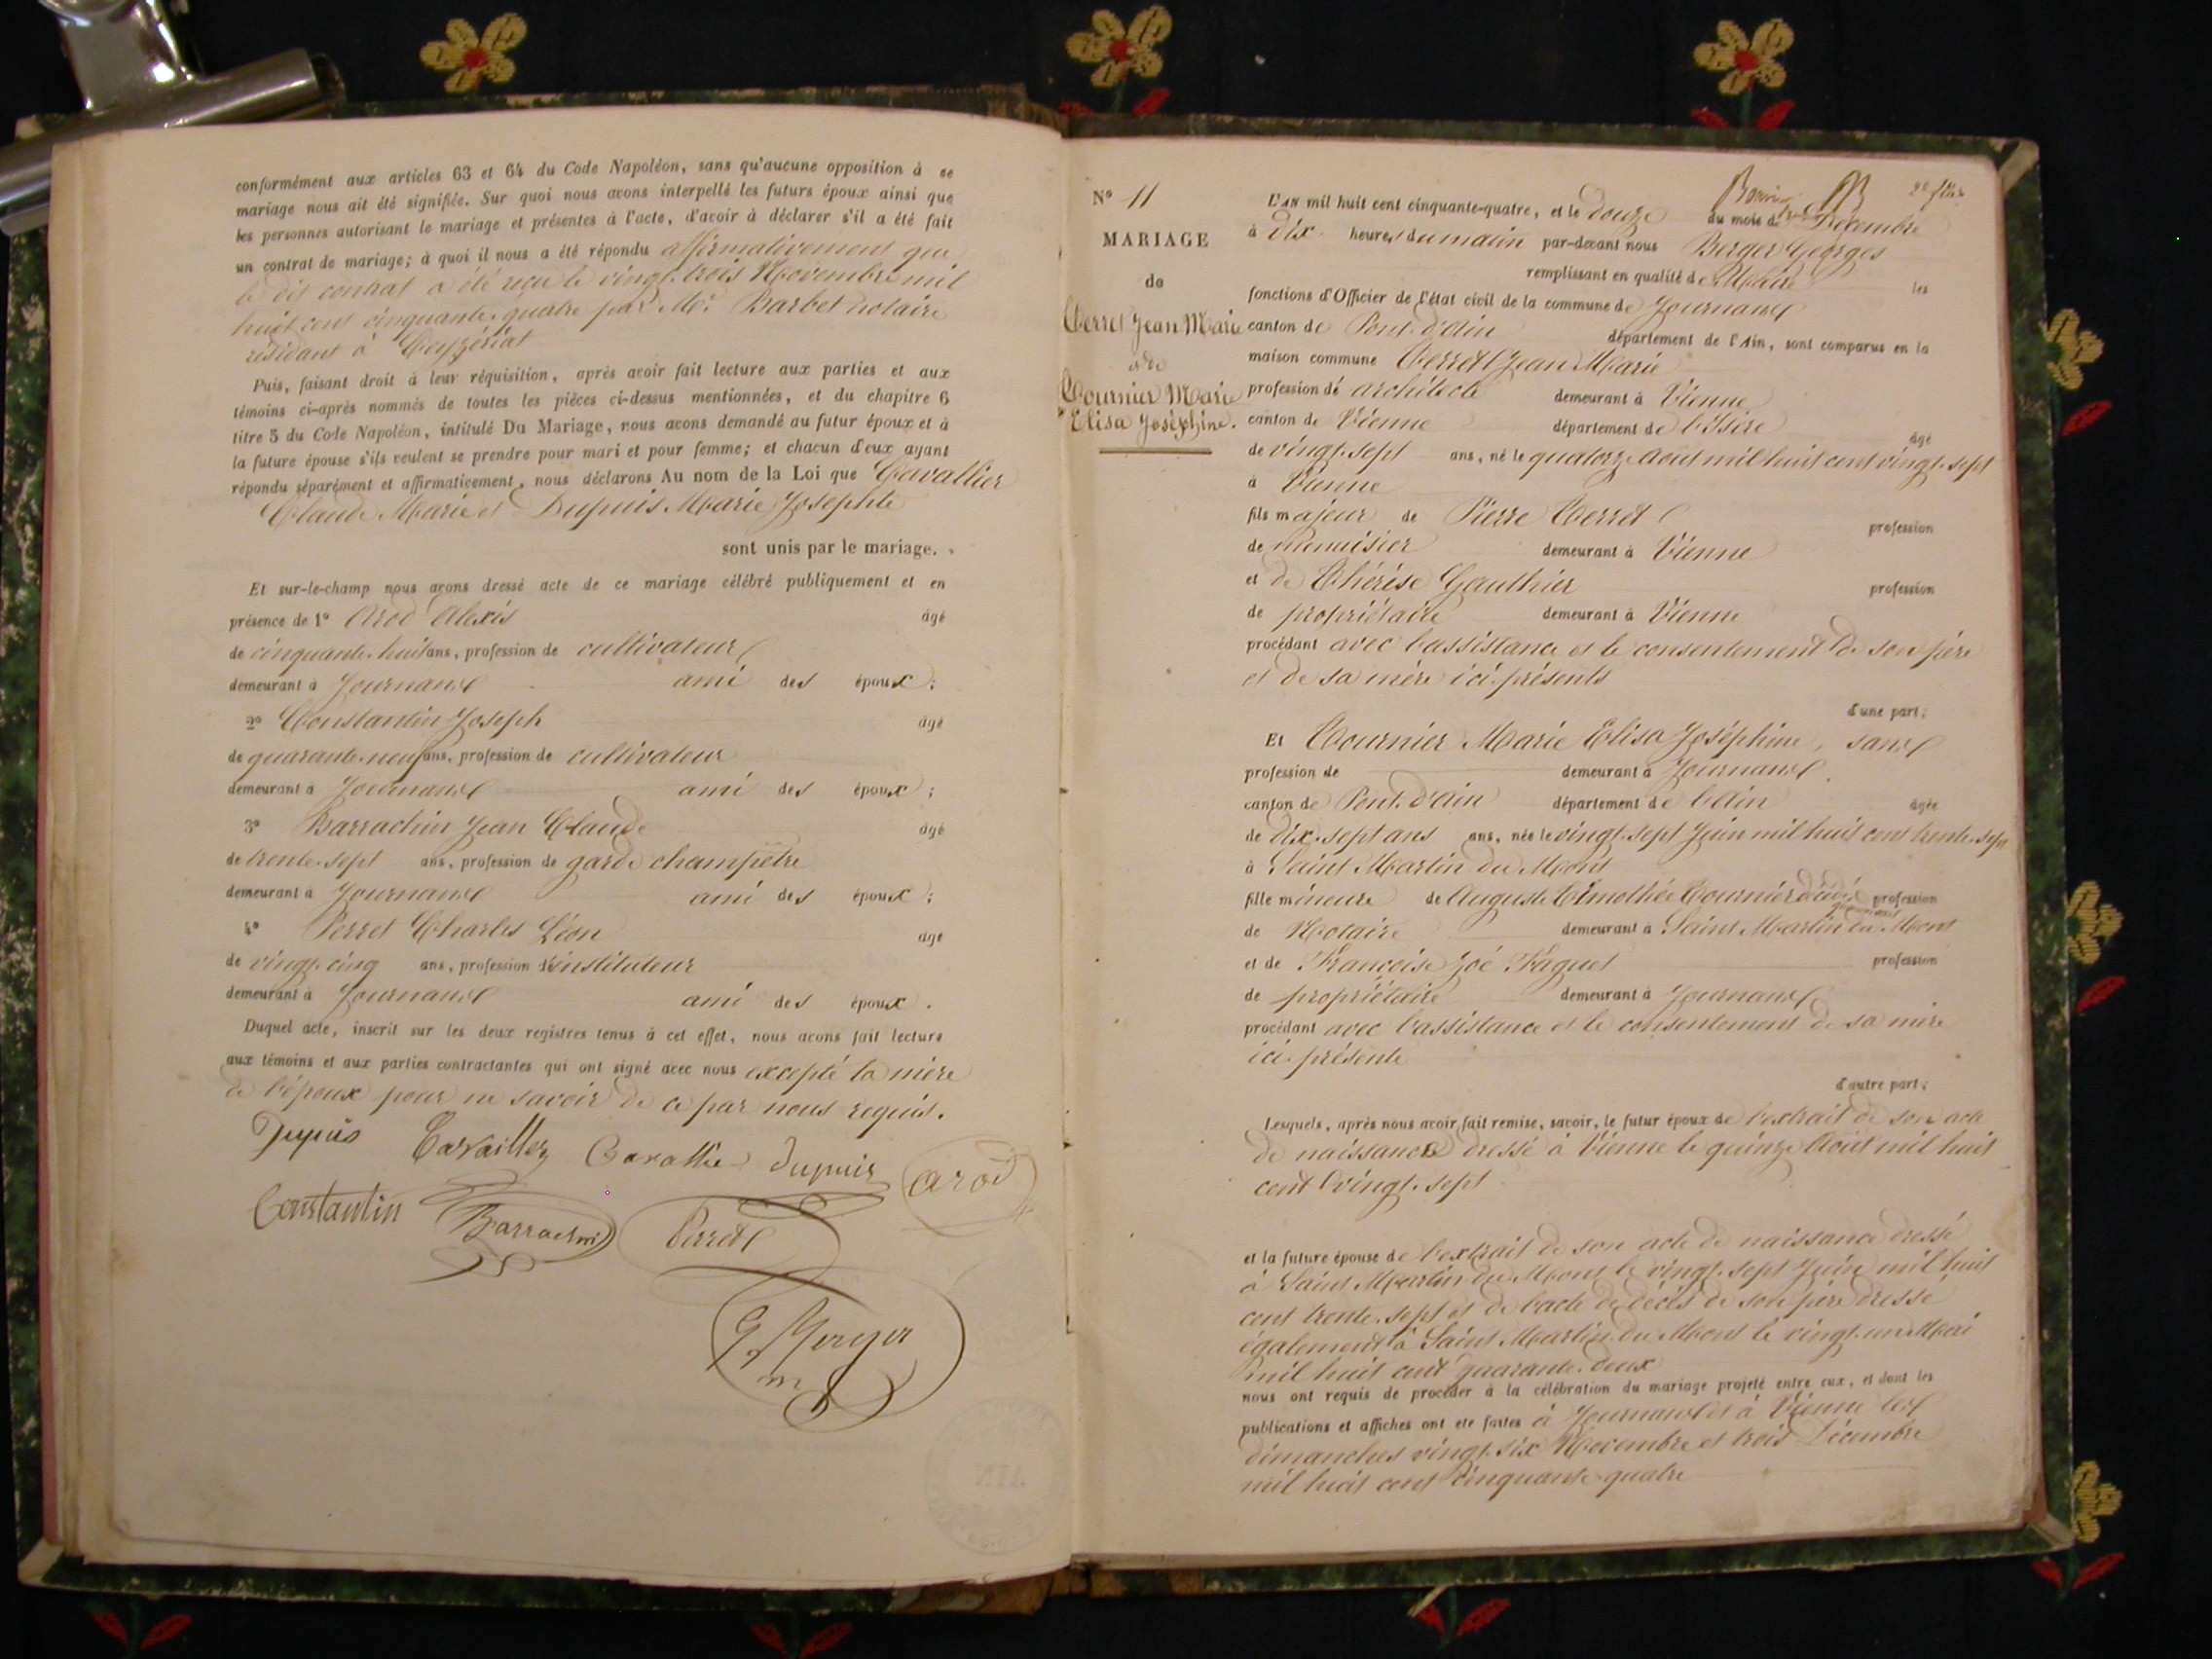 conformément aux articles 63 et 64 du Code Napoléon, sans qu'aucune opposition à ce
mariage nous ait été signifiée. Sur quoi nous avons interpellé les futurs époux ainsi que
les personnes autorisant le mariage et présentes à l'acte, d'avoir à déclarer s'il a été fait
un contrat de mariage; à quoi il nous a été répondu affirmativement que
le dit contrat a été reçu le vingt trois Novembre mil
huit cent cinquante quatre par Me. Barbet notaire
résidant à Ceyzériat
Puis, faisant droit à leur réquisition, après avoir fait lecture aux parties et aux
témoins ci-après nommés de toutes les pièces ci-dessus mentionnées, et du chapitre 6
titre 5 du Code Napoléon, intitulé Du Mariage, nous avons demandé au futur époux et à
la future épouse s'ils veulent se prendre pour mari et pour femme; et chacun d'eux ayant
répondu séparément et affirmativement, nous déclarons Au nom de la Loi que Cavallier
Claude Marie et Dupuis Marie Josephte
sont unis par le mariage.
Et sur-le-champ nous avons dressé acte de ce mariage célébré publiquement et en
présence de 1° Arod Alexis âgé
de cinquante-huit ans, profession de cultivateur
demeurant à Journans ami des époux;
2° Constantin Joseph âgé
de quarante-neuf ans, profession de cultivateur
demeurant à Journans ami des époux;
3° Barrachin Jean Claude âgé
de trente-sept ans, profession de garde champêtre
demeurant à Journans ami des époux;
4° Perret Charles Léon âgé
de vingt-cinq ans, profession d'instituteur
demeurant à Journans ami des époux.
Duquel acte, inscrit sur les deux registres tenus à cet effet, nous avons fait lecture
aux témoins et aux parties contractantes qui ont signé avec nous excepté la mère
de l'époux pour ne savoir de ce par nous requis.
Dupuis Cavallier Cavallier Dupuis Arod
Constantin Barrachin Perret
G Berger
m
N° 11
MARIAGE
de
Cerret Jean Marie
et de
Cournier Marie
Elisa Joséphine.
L'AN mil huit cent cinquante-quatre, et le douze du mois de Décembre
à dix heures du matin par-devant nous Berger Georges
remplissant en qualité de Maire les
fonctions d'Officier de l'état civil de la commune de Journans
canton de Pont-d'Ain département de l'Ain, sont comparus en la
maison commune Cerret Jean Marie
profession d'architecte demeurant à Vienne
canton de Vienne département de l'Isère âgé
de vingt-sept ans, né le quatorze Août mil huit cent vingt-sept
à Vienne
fils majeur de Pierre Cerret profession
de menuisier demeurant à Vienne
et de Thérèse Gauthier profession
de propriétaire demeurant à Vienne
procédant avec l'assistance et le consentement de son père
et de sa mère ici présents
d'une part;
Et Cournier Marie Elisa Joséphine, sans
profession de demeurant à Journans
canton de Pont-d'Ain département de l'Ain âgée
de dix-sept ans ans, née le vingt-sept Juin mil huit cent trente-sept
à Saint Martin du Mont
fille mineure de Auguste Timothée Cournier décédé profession
de Notaire demeurant à Saint Martin du Mont
et de Françoise Zoé Faguet profession
de propriétaire demeurant à Journans
procédant avec l'assistance et le consentement de sa mère
ici présente
d'autre part;
Lesquels, après nous avoir fait remise, savoir, le futur époux de l'extrait de son acte
de naissance dressé à Vienne le quinze Août mil huit
cent vingt-sept
et la future épouse de l'extrait de son acte de naissance dressé
à Saint Martin du Mont le vingt-sept Juin mil huit
cent trente-sept et de l'acte de décès de son père dressé
également à Saint Martin du Mont le vingt-un Mai
mil huit cent quarante-deux
nous ont requis de procéder à la célébration du mariage projeté entre eux, et dont les
publications et affiches ont été faites à Journans et à Vienne les
dimanches vingt-six Novembre et trois Décembre
mil huit cent cinquante-quatre